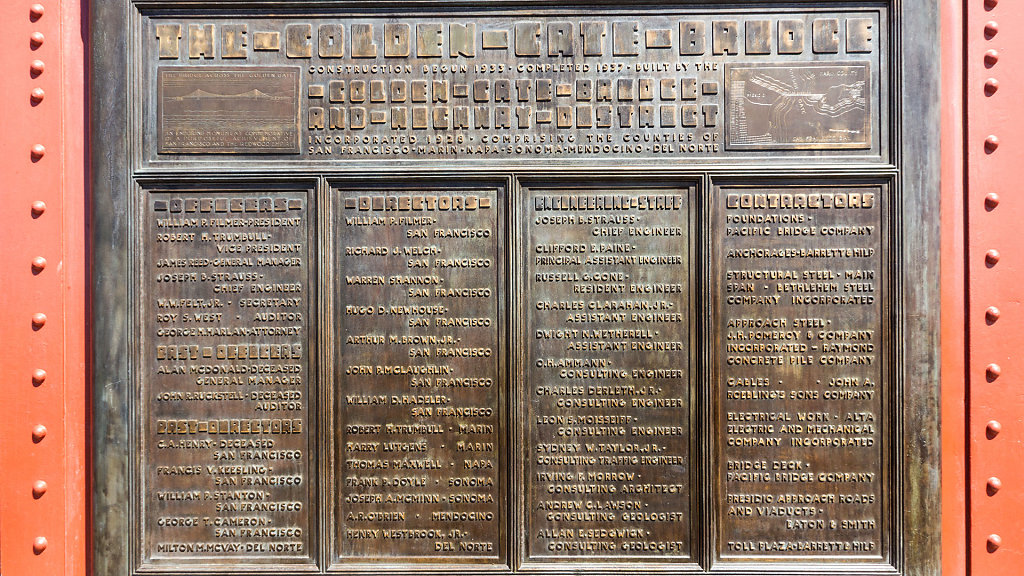 THE-GOLDEN-GATE-BRIDGE
CONSTRUCTION BEGUN 1933 · COMPLETED 1937 · BUILT BY THE
-GOLDEN-GATE-BRIDGE-
AND-HIGHWAY-DISTRICT
INCORPORATED 1928 · COMPRISING THE COUNTIES OF
SAN FRANCISCO·MARIN·NAPA·SONOMA·MENDOCINO·DEL NORTE
THE BRIDGE ACROSS THE GOLDEN GATE
AN ENDURING MONUMENT COMMEMORATIVE
MARIN COUNTY
-OFFICERS-
WILLIAM P. FILMER·PRESIDENT
ROBERT H. TRUMBULL·
VICE PRESIDENT
JAMES REED·GENERAL MANAGER
JOSEPH B. STRAUSS·
CHIEF ENGINEER
W.W. FELT, JR. · SECRETARY
ROY S. WEST · AUDITOR
GEORGE H. HARLAN·ATTORNEY
PAST-OFFICERS
ALAN MCDONALD·DECEASED
GENERAL MANAGER
JOHN R. RUCKSTELL·DECEASED
AUDITOR
PAST-DIRECTORS
C.A. HENRY·DECEASED
SAN FRANCISCO
FRANCIS V. KEESLING·
SAN FRANCISCO
WILLIAM P. STANTON·
SAN FRANCISCO
GEORGE T. CAMERON·
SAN FRANCISCO
MILTON M. MCVAY·DEL NORTE
-DIRECTORS-
WILLIAM P. FILMER·
SAN FRANCISCO
RICHARD J. WELCH·
SAN FRANCISCO
WARREN SHANNON·
SAN FRANCISCO
HUGO D. NEWHOUSE·
SAN FRANCISCO
ARTHUR M. BROWN, JR.·
SAN FRANCISCO
JOHN P. MCLAUGHLIN·
SAN FRANCISCO
WILLIAM D. HADELER·
SAN FRANCISCO
ROBERT H. TRUMBULL · MARIN
HARRY LUTGENS · MARIN
THOMAS MAXWELL · NAPA
FRANK P. DOYLE · SONOMA
JOSEPH A. MCMINN·SONOMA
A.R. O'BRIEN · MENDOCINO
HENRY WESTBROOK, JR.·
DEL NORTE
ENGINEERING-STAFF
JOSEPH B. STRAUSS·
CHIEF ENGINEER
CLIFFORD E. PAINE·
PRINCIPAL ASSISTANT ENGINEER
RUSSELL G. CONE·
RESIDENT ENGINEER
CHARLES CLARAHAN, JR.·
ASSISTANT ENGINEER
DWIGHT N. WETHERELL·
ASSISTANT ENGINEER
O.H. AMMANN·
CONSULTING ENGINEER
CHARLES DERLETH, JR.·
CONSULTING ENGINEER
LEON S. MOISSEIFF·
CONSULTING ENGINEER
SYDNEY W. TAYLOR, JR.·
CONSULTING TRAFFIC ENGINEER
IRVING F. MORROW·
CONSULTING ARCHITECT
ANDREW C. LAWSON·
CONSULTING GEOLOGIST
ALLAN E. SEDGWICK·
CONSULTING GEOLOGIST
CONTRACTORS
FOUNDATIONS·
PACIFIC BRIDGE COMPANY
ANCHORAGES·BARRETT & HILP
STRUCTURAL STEEL · MAIN
SPAN · BETHLEHEM STEEL
COMPANY INCORPORATED
APPROACH STEEL·
J.H. POMEROY & COMPANY
INCORPORATED - RAYMOND
CONCRETE PILE COMPANY
CABLES · · JOHN A.
ROEBLING'S SONS COMPANY
ELECTRICAL WORK · ALTA
ELECTRIC AND MECHANICAL
COMPANY INCORPORATED
BRIDGE DECK·
PACIFIC BRIDGE COMPANY
PRESIDIO APPROACH ROADS
AND VIADUCTS·
EATON & SMITH
TOLL PLAZA·BARRETT & HILP